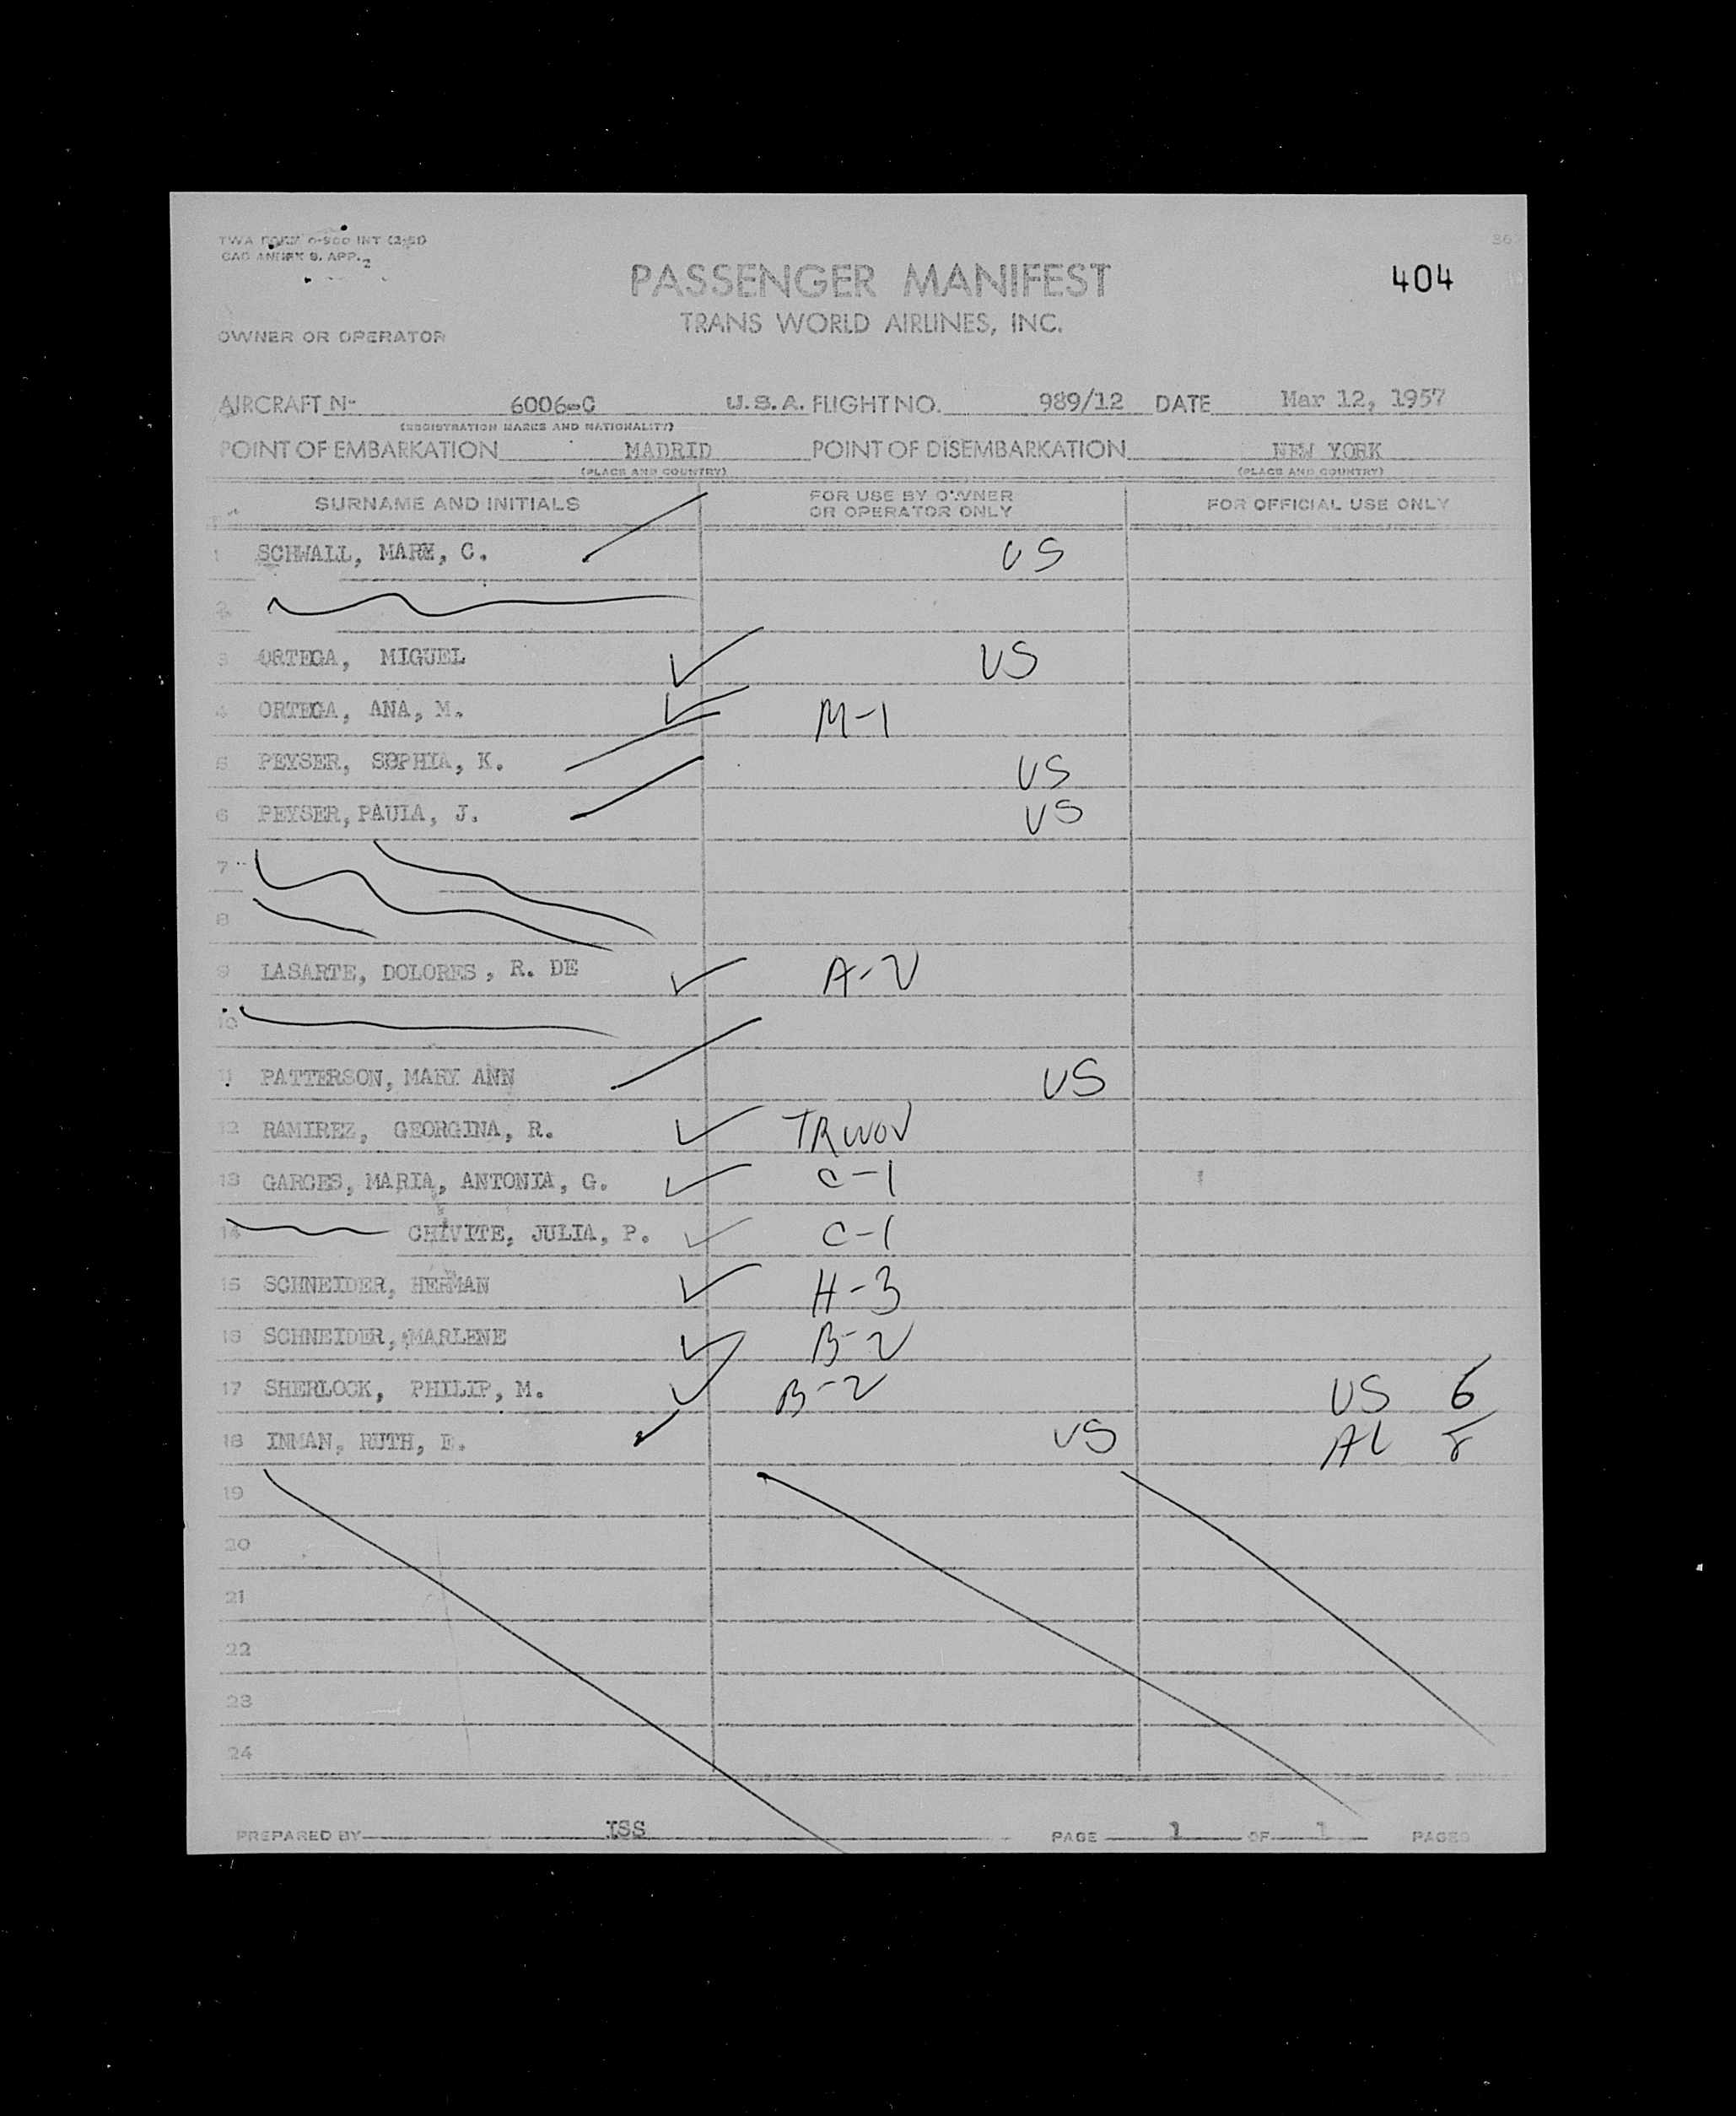 TWA FORM O-900 INT (2-51)
CAO ANNEX 9. APP. 2
PASSENGER MANIFEST
404
TRANS WORLD AIRLINES, INC.
OWNER OR OPERATOR
AIRCRAFT N- 6006-C U.S.A. FLIGHT NO. 989/12 DATE Mar 12, 1957
(REGISTRATION MARKS AND NATIONALITY)
POINT OF EMBARKATION MADRID POINT OF DISEMBARKATION NEW YORK
(PLACE AND COUNTRY) (PLACE AND COUNTRY)
SURNAME AND INITIALS FOR USE BY OWNER OR OPERATOR ONLY FOR OFFICIAL USE ONLY
1 SCHWALL, MARY, C. US
2
3 ORTEGA, MIGUEL US
4 ORTEGA, ANA, M. M-1
5 PEYSER, SOPHIA, K. US
6 PEYSER, PAULA, J. US
7
8
9 LASARTE, DOLORES, R. DE A-2
10
11 PATTERSON, MARY ANN US
12 RAMIREZ, GEORGINA, R. TRWOV
13 GARCES, MARIA, ANTONIA, G. C-1
14 CHIVITE, JULIA, P. C-1
15 SCHNEIDER, HERMAN H-3
16 SCHNEIDER, MARLENE B-2
17 SHERLOCK, PHILIP, M. B-2 US 6
18 INMAN, RUTH, E. US AL 8
19
20
21
22
23
24
PREPARED BY ISS PAGE 1 OF 1 PAGES